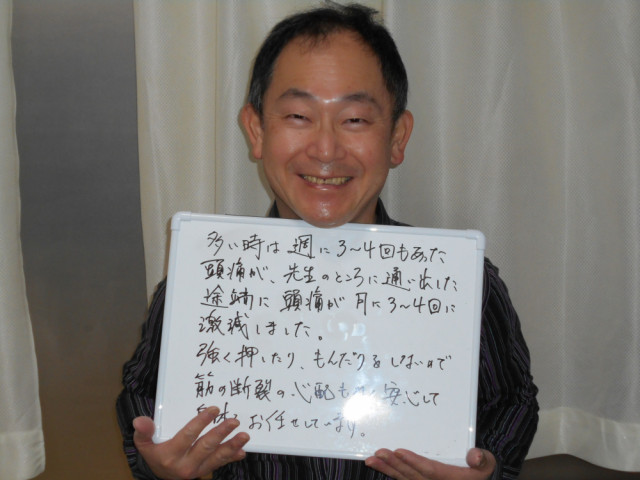 多い時は週に3〜4回もあった
頭痛が、先生のところに通い出した
途端に頭痛が月に3〜4回に
激減しました。
強く押したり、もんだりもしないので
筋の断裂の心配もなく安心して
お任せしています。